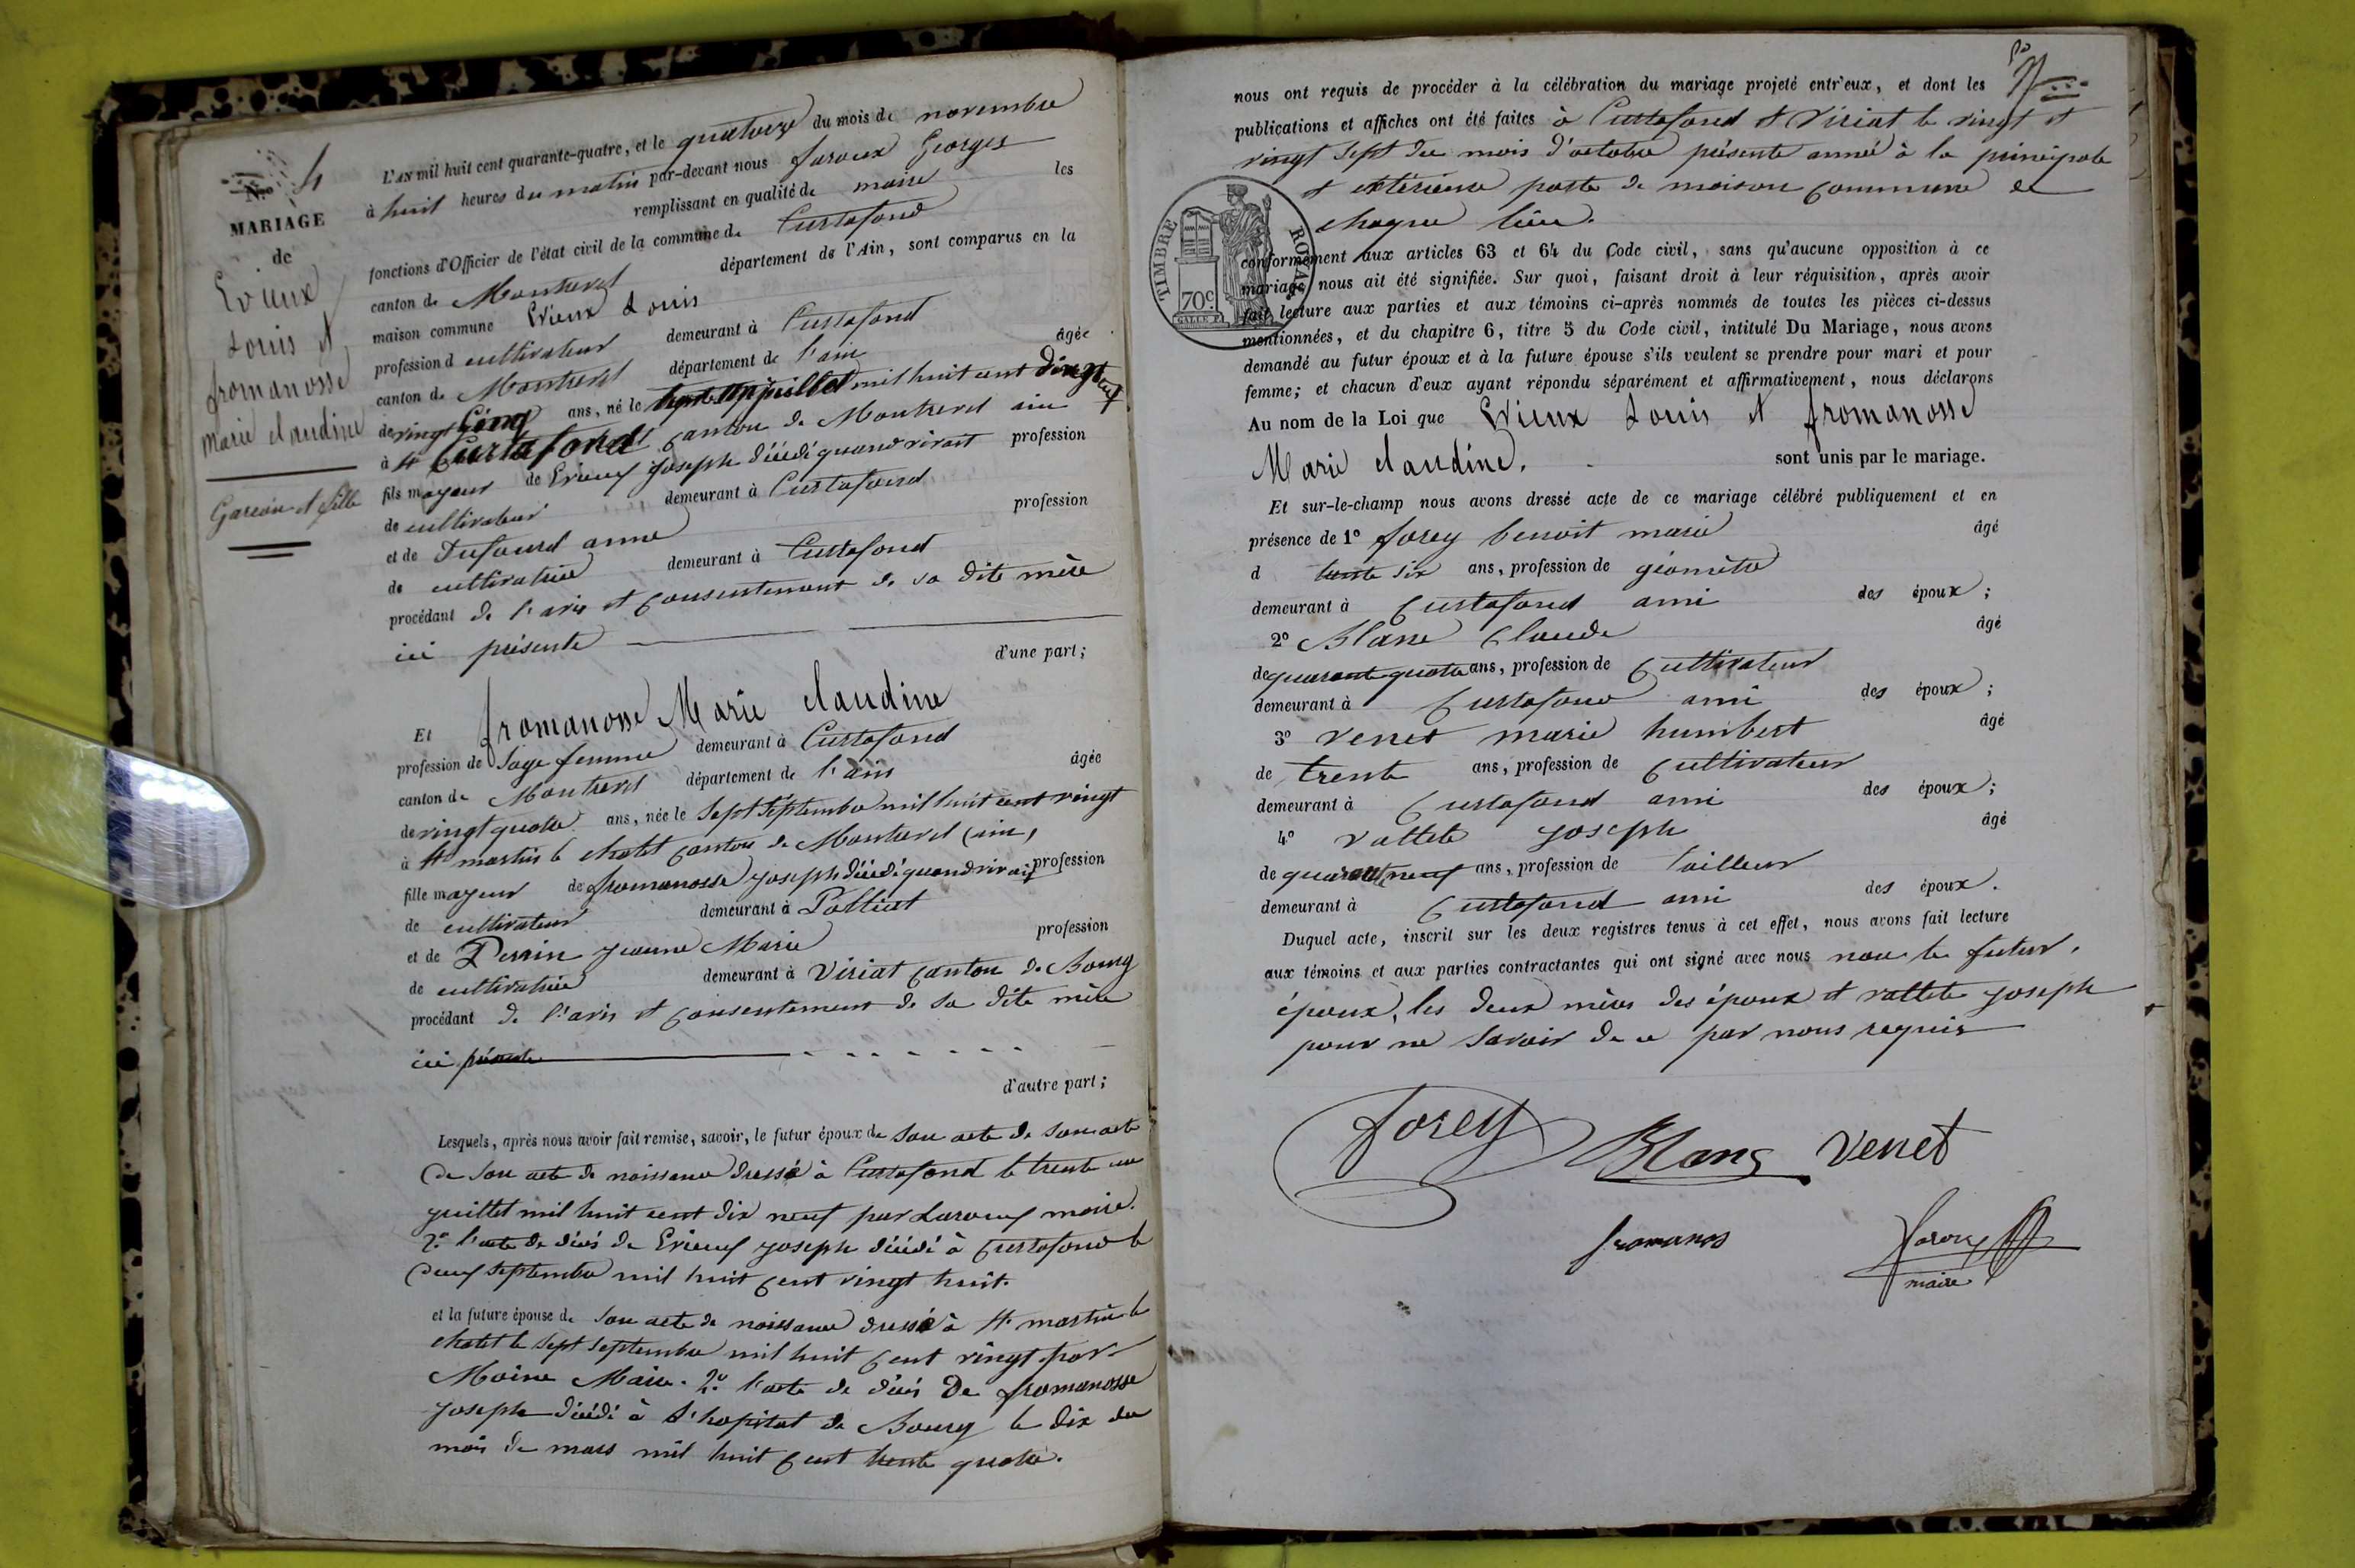 N.o 4
MARIAGE
de
Evieux
Louis et
fromanosse
Marie claudine
Garçon et fille
L'AN mil huit cent quarante-quatre, et le quatorze du mois de novembre
à huit heures du matin par-devant nous Laroux Georges
remplissant en qualité de maire les
fonctions d'Officier de l'état civil de la commune de Curtafond
canton de Montrevel département de l'Ain, sont comparus en la
maison commune Evieux Louis
profession d cultivateur demeurant à Curtafond
canton de Montrevel département de l'ain âgée
de vingt Cinq ans, né le juillet mil huit cent dix neuf
à Curtafond canton de Montrevel ain
fils mayeur de Evieux joseph décédé quand vivait profession
de cultivateur demeurant à Curtafond
et de Dufourd anne profession
de cultivatrice demeurant à Curtafond
procédant de l'avis et consentement de sa dite mère
ici présente
d'une part;
Et fromanosse Marie claudine
profession de Sage femme demeurant à Curtafond
canton de Montrevel département de l'ain âgée
de vingt quatre ans, née le sept septembre mil huit cent vingt
à St martin le chatel canton de Montrevel (ain,
fille mayeur de fromanosse joseph décédé quand vivait profession
de cultivateur demeurant à Polliat
et de Perrin jeanne Marie profession
de cultivatrice demeurant à Viriat canton de Bourg
procédant de l'avis et consentement de sa dite mère
ici présente
d'autre part;
Lesquels, après nous avoir fait remise, savoir, le futur époux de son acte de son acte
de son acte de naissance dressé à Curtafond le trente un
juillet mil huit cent dix neuf par Laroux maire.
2.o l'acte de décès de Evieux joseph décédé à Curtafond le
deux septembre mil huit cent vingt huit.
et la future épouse de son acte de naissance dressé à St martin le
chatel le sept septembre mil huit cent vingt par
Moine Maire. 2.o l'acte de décès De fromanosse
joseph décédé à l'hopital de Bourg le dix du
mois de mars mil huit cent trente quatre.
nous ont requis de procéder à la célébration du mariage projeté entr'eux, et dont les
publications et affiches ont été faites à Curtafond et Viriat le vingt et
vingt sept du mois d'octobre présente année à la principale
et extérieure porte de maison commune de
chaque lieu.
TIMBRE ROYAL
70c
conformément aux articles 63 et 64 du Code civil, sans qu'aucune opposition à ce
mariage nous ait été signifiée. Sur quoi, faisant droit à leur réquisition, après avoir
fait lecture aux parties et aux témoins ci-après nommés de toutes les pièces ci-dessus
mentionnées, et du chapitre 6, titre 5 du Code civil, intitulé Du Mariage, nous avons
demandé au futur époux et à la future épouse s'ils veulent se prendre pour mari et pour
femme; et chacun d'eux ayant répondu séparément et affirmativement, nous déclarons
Au nom de la Loi que Evieux Louis et fromanosse
Marie claudine. sont unis par le mariage.
Et sur-le-champ nous avons dressé acte de ce mariage célébré publiquement et en
présence de 1o forey benoit marie âgé
d trente six ans, profession de géomètre
demeurant à Curtafond ami des époux;
2o Blanc Claude âgé
de quarante quatre ans, profession de Cultivateur
demeurant à Curtafond ami des époux;
3o venet marie humbert âgé
de trente ans, profession de Cultivateur
demeurant à Curtafond ami des époux;
4o vallet joseph âgé
de quarante neuf ans, profession de tailleur
demeurant à Curtafond ami des époux.
Duquel acte, inscrit sur les deux registres tenus à cet effet, nous avons fait lecture
aux témoins et aux parties contractantes qui ont signé avec nous non le futur,
époux, les deux mères des époux et vallet joseph
pour ne savoir de ce par nous requis
forey Blanc Venet
fromanos Laroux
maire